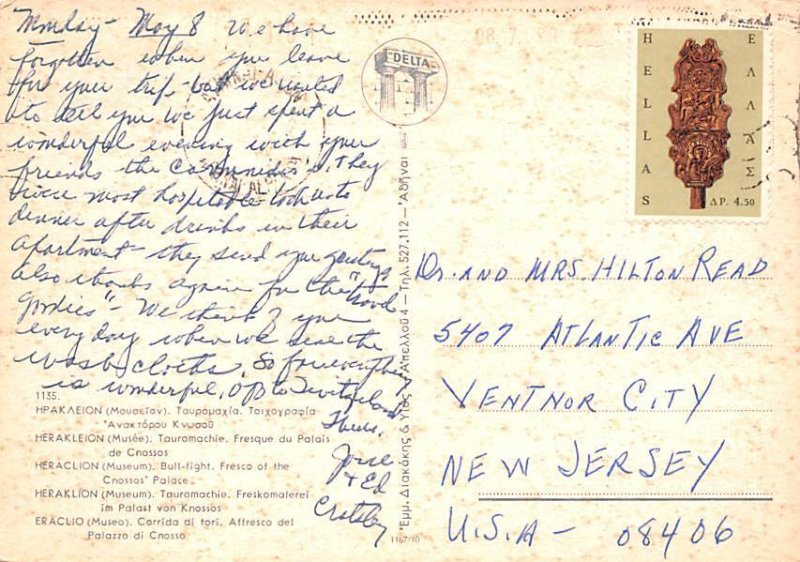 Monday - May 8 We have
forgotten when you leave
for your trip - but we wanted
to tell you we just spent a
wonderful evening with your
friends the . They
were most hospitable took us to
dinner after drinks in their
apartment - they send you greetings
also thanks again for the "travel
goodies" - We think of you
everyday when we use the
wash cloths. So far everything
is wonderful. Off to Switzerland
Thurs.
June
+ Ed
1135.
ΗΡΑΚΛΕΙΟΝ (Μουσεῖον). Ταυρομαχία. Τοιχογραφία
Ἀνακτόρου Κνωσοῦ
HERAKLEION (Musée). Tauromachie. Fresque du Palais
de Cnossos
HERACLION (Museum). Bull-fight. Fresco of the
Cnossos' Palace.
HERAKLION (Museum). Tauromachie. Freskomalerei
im Palast von Knossos
ERACLIO (Museo). Corrida di tori. Affresco del
Palazzo di Cnosso
DELTA
Ἐμμ. Διακάκης & Υἱός - Ἀπελλοῦ 4 - Τηλ. 527.112 - Ἀθῆναι
1167/10
HELLAS
ΕΛΛΑΣ
ΔΡ. 4.50
Dr. AND MRS HILTON READ
5407 ATLANTIC AVE
VENTNOR CITY
NEW JERSEY
U.S.A - 08406